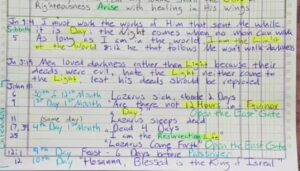 Righteousness Arise with healing in His wings
Jn 9:4 I must work the works of Him that sent Me while
Sabbath it is Day: the Night comes when no man can work
5 As long as I am in the world I am the Light
of the World 8:12 he that follows Me won't walk darkness
Jn 3:19 Men loved darkness rather than Light because their
deeds were evil, hate the Light neither come to
the Light lest his deeds should be reproved
John 11
20th Day 12th Month "Lazarus sick abode 2 Days
1st Day 1st Month Are there not 12 Hours in
Day Equinox Open the East Gate
11 (same day) Lazarus sleeps dead
17, 39 4th Day 1st Month Dead 4 Days
25 I am the Resurrection Life
"Lazarus Come Forth" Open the East Gate
12:1 9th Day Feast - 6 Days before Passover
12 10th Day Hosanna, Blessed is the King of Isreal